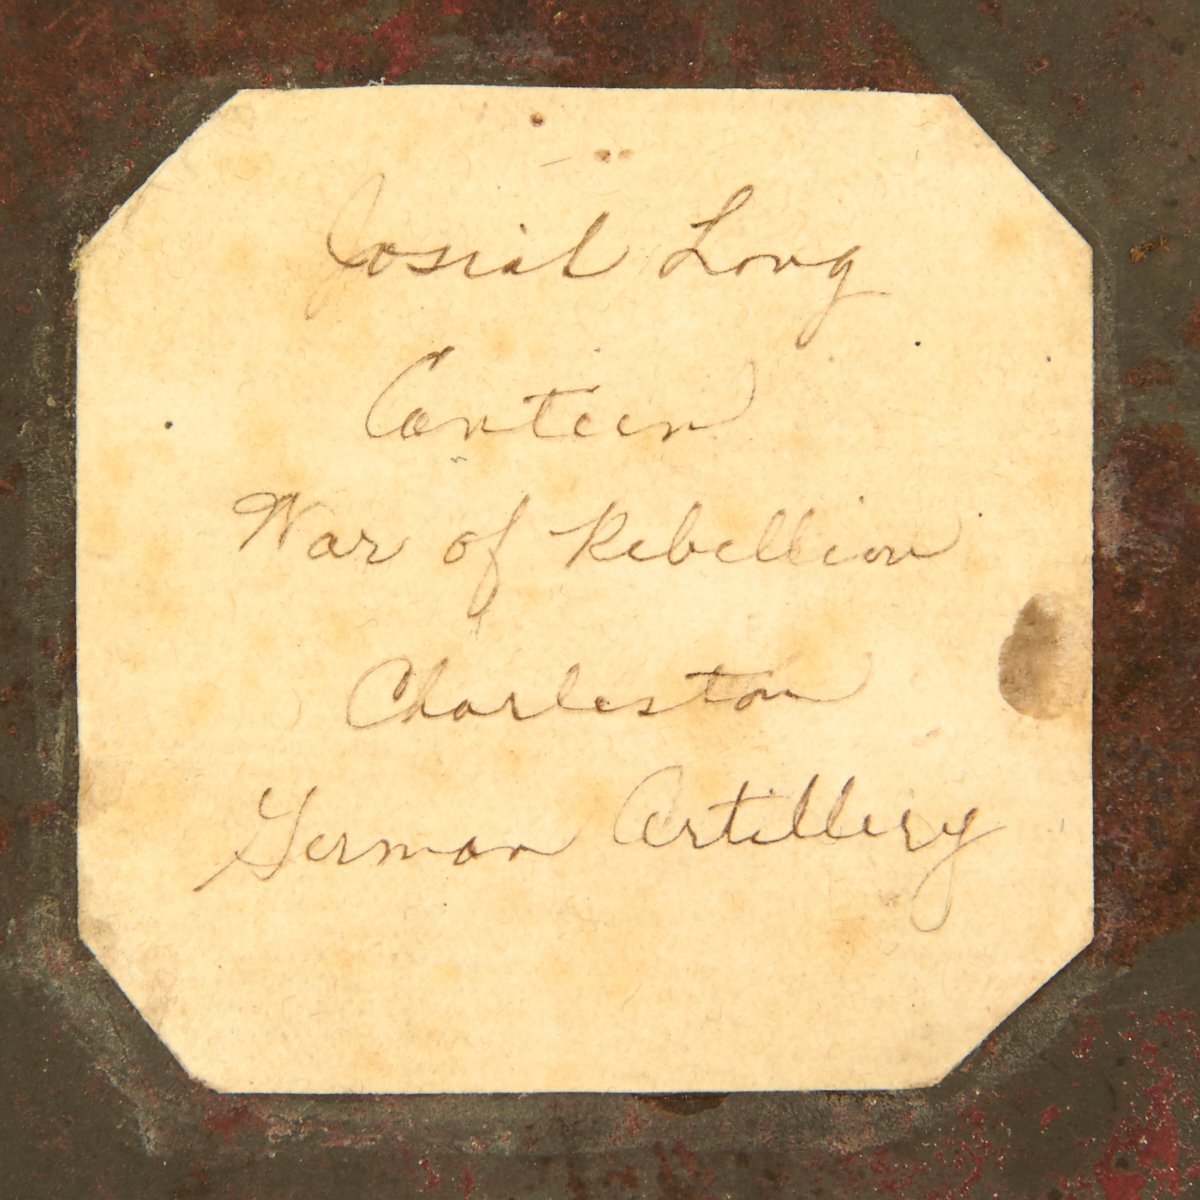 Josiah Long
Canteen
War of Rebellion
Charleston
German Artillery